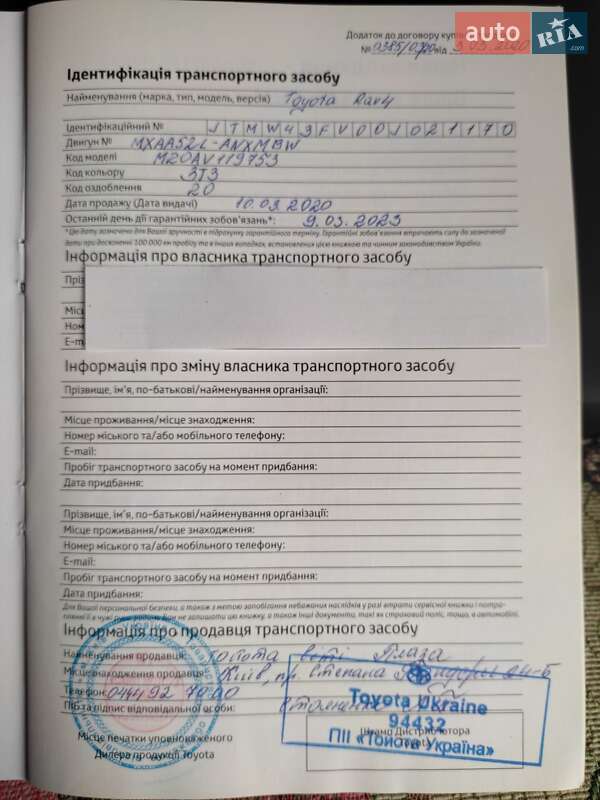 auto RIA .com
Додаток до договору купі
№ 0385/0700 від 5.03.2020
Ідентифікація транспортного засобу
Найменування (марка, тип, модель, версія) Toyota Rav4
Ідентифікаційний № JTMW43FV00J021170
Двигун № MXAA52L-ANXMBW
Код моделі M20AV119753
Код кольору 3T3
Код оздоблення 20
Дата продажу (Дата видачі) 10.03.2020
Останній день дії гарантійних зобов'язань*: 9.03.2023
*Цю дату зазначено для Вашої зручності в підрахунку гарантійного терміну. Гарантійні зобов'язання втрачають силу до зазначеної
дати при досягненні 100 000 км пробігу та в інших випадках, встановлених цією книжкою та чинним законодавством України.
Інформація про власника транспортного засобу
Пріз
Місц
Ном
E-m
Інформація про зміну власника транспортного засобу
Прізвище, ім'я, по-батькові/найменування організації:
Місце проживання/місце знаходження:
Номер міського та/або мобільного телефону:
E-mail:
Пробіг транспортного засобу на момент придбання:
Дата придбання:
Прізвище, ім'я, по-батькові/найменування організації:
Місце проживання/місце знаходження:
Номер міського та/або мобільного телефону:
E-mail:
Пробіг транспортного засобу на момент придбання:
Дата придбання:
Для Вашої персональної безпеки, а також з метою запобігання небажаних наслідків у разі втрати сервісної книжки і потрап-
лянні її в чужі руки, радимо Вам не залишати цю книжку, а також інші документи, такі як страховий поліс, тощо, в автомобілі.
Інформація про продавця транспортного засобу
Найменування продавця: Тойота Сіті Плаза
Місцезнаходження продавця: Київ, пр. Степана
Телефон: 044 492 70 00
ПІБ та підпис відповідальної особи:
Toyota Ukraine
94432
ПІІ «Тойота Україна»
Місце печатки уповноваженого
Дилера продукції Toyota
Штамп Дистриб'ютора